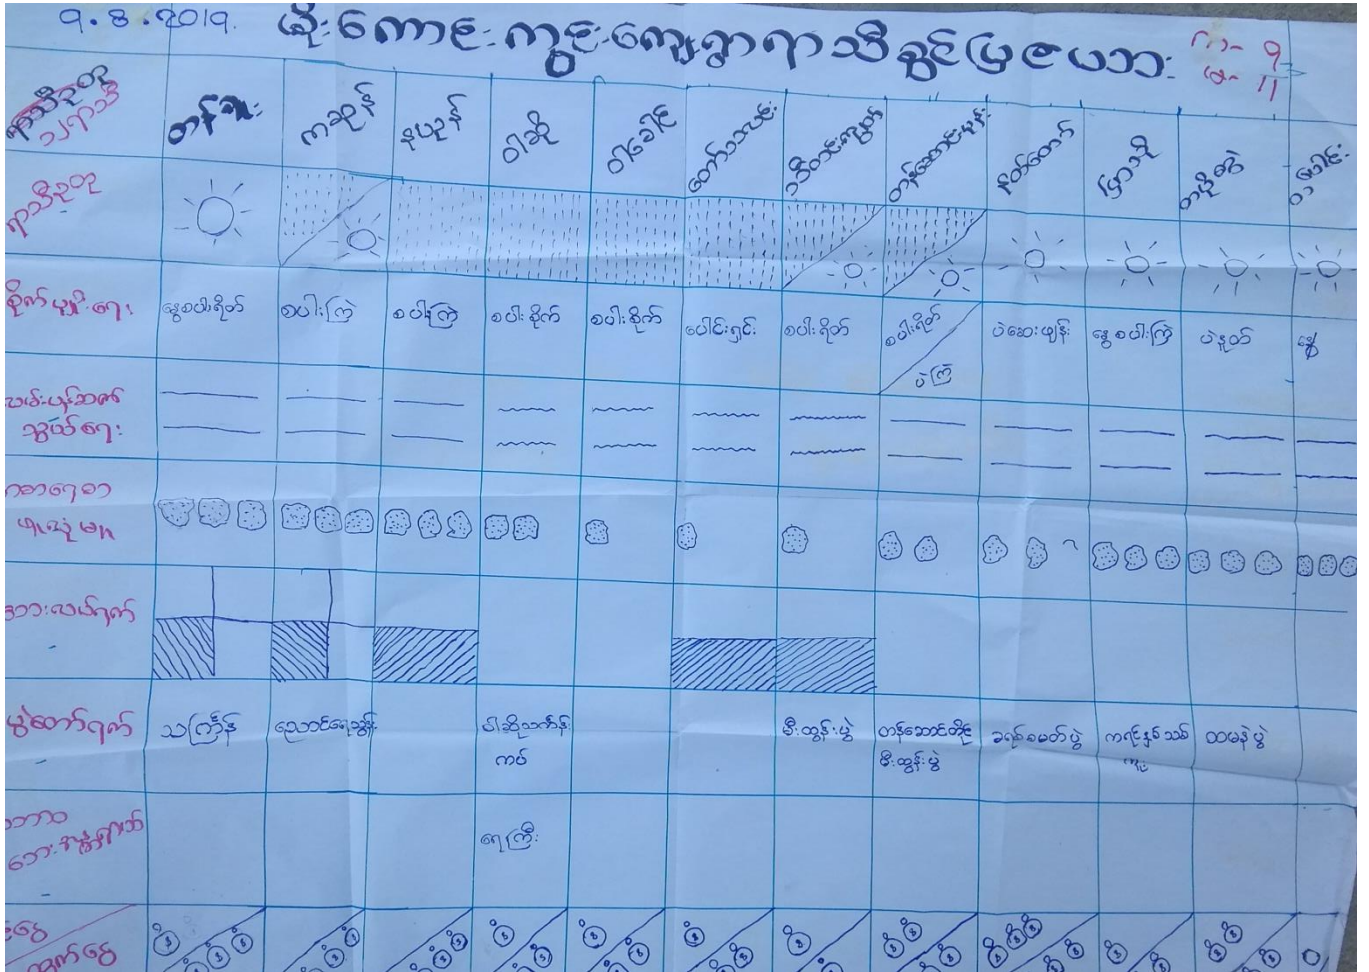 ၇.၈.၂၀၁၉.
မိုးကောင်းကွင်းကျေးရွာရာသီခွင်ပြဇယား
ကျ- ၇
မ- ၁၁
ရာသီဥတု
၁၂ရာသီ
တန်ခူး
ကဆုန်
နယုန်
ဝါဆို
ဝါခေါင်
တော်သလင်း
သီတင်းကျွတ်
တန်ဆောင်မုန်း
နတ်တော်
ပြာသို
တပို့တွဲ
တပေါင်း
ရာသီဥတု
စိုက်ပျိုးရေး
နွေစပါးရိတ်
စပါးကြဲ
စပါးကြဲ
စပါးစိုက်
စပါးစိုက်
ပေါင်းရှင်း
စပါးရိတ်
စပါးရိတ်
ပဲကြဲ
ပဲဆေးဖျန်း
နွေစပါးကြဲ
ပဲနူတ်
နွေ
လမ်းပန်းဆက်
သွယ်ရေး
ဘေးလယ်ရက်
ပွဲတော်ရက်
သင်္ကြန်
ညောင်ရေသွန်း
ဝါဆိုသင်္ကန်း
ကပ်
မီးထွန်းပွဲ
တန်ဆောင်တိုင်
မီးထွန်းပွဲ
ခရစ်စမတ်ပွဲ
ကရင်နှစ်သစ်
ကူး
ထမနဲပွဲ
ဘေးအန္တရာယ်
ရေကြီး
ထွက်ငွေ